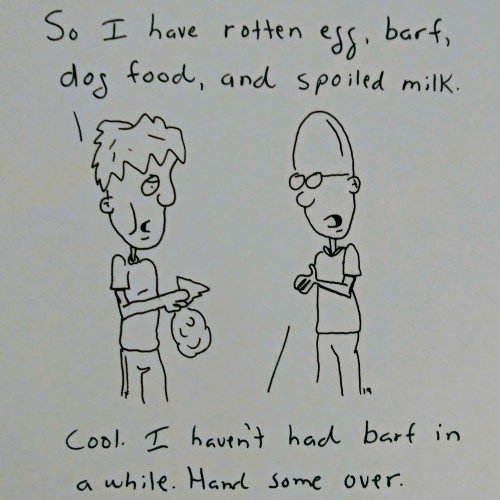 So I have rotten egg, barf,
dog food, and spoiled milk.
Cool. I haven't had barf in
a while. Hand some over.